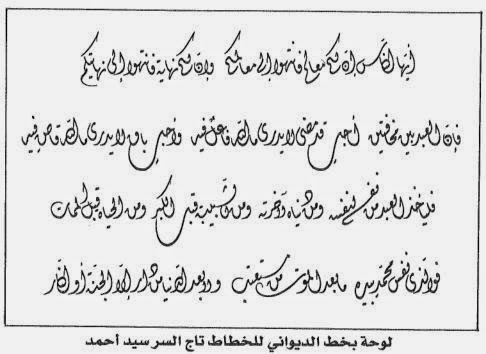 أيها الناس إن لكم معالم فانتهوا إلى معالمكم وإن لكم نهاية فانتهوا إلى نهايتكم
فإن العبد بين مخافتين أجل قد مضى لا يدري ما الله فاعل فيه وأجل باق لا يدري ما الله قاض فيه
فليأخذ العبد من نفسه لنفسه ومن دنياه لآخرته ومن الشبيبة قبل الكبر ومن الحياة قبل الممات
فوالذي نفس محمد بيده ما بعد الموت من مستعتب وما بعد الدنيا من دار إلا الجنة أو النار
لوحة بخط الديواني للخطاط تاج السر سيد أحمد